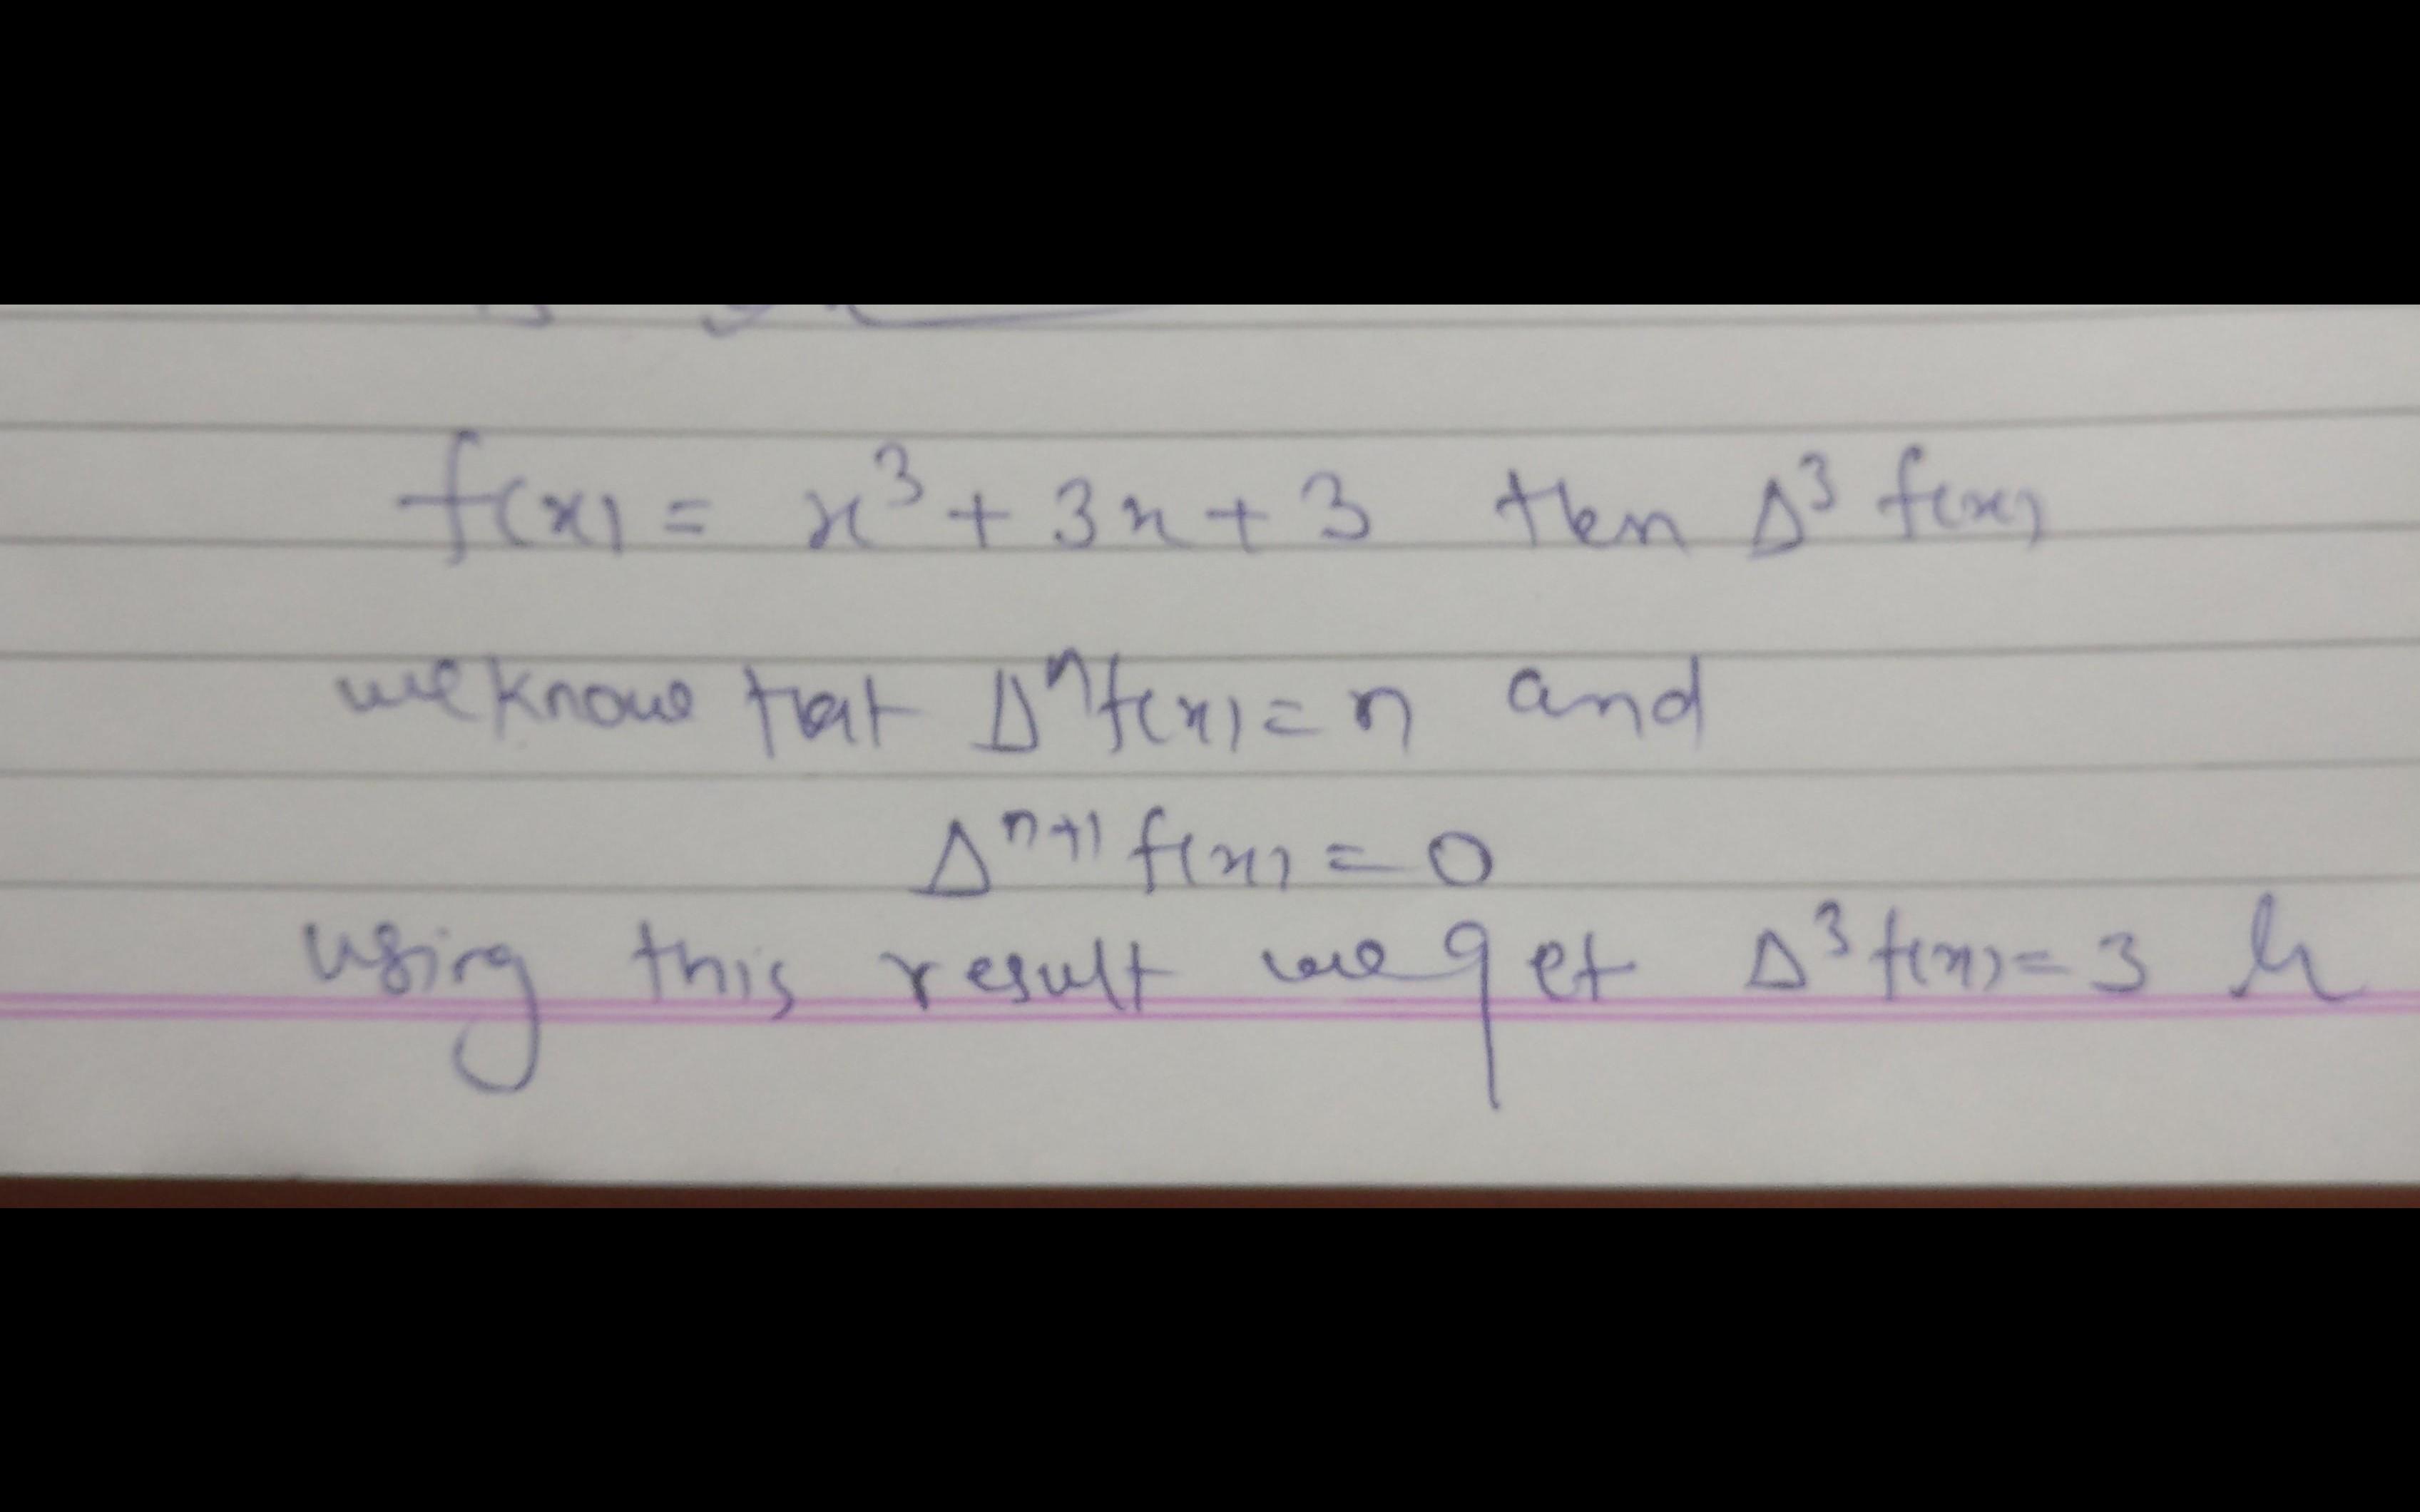 f(x) = x³ + 3x + 3 then Δ³ f(x)
we know that Δⁿf(x) = n and
Δⁿ⁺¹ f(x) = 0
using this result we get Δ³ f(x) = 3